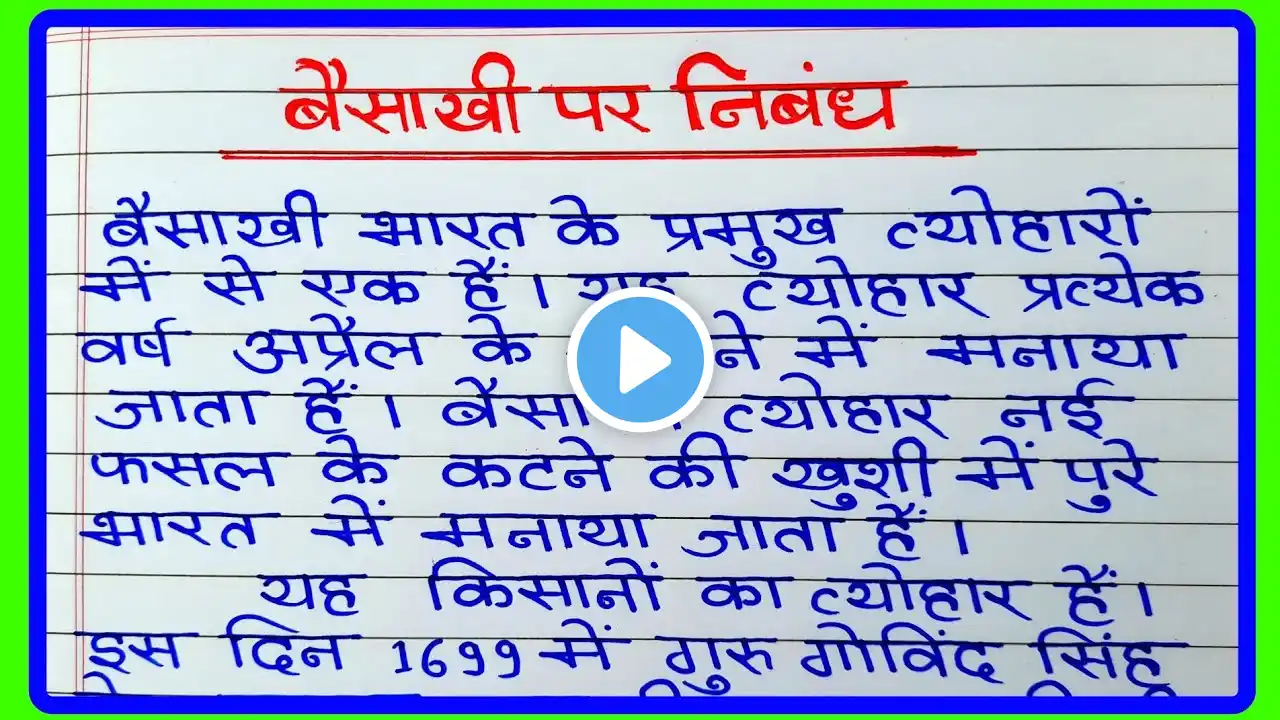 बैसाखी पर निबंध
बैसाखी भारत के प्रमुख त्योहारों
में से एक हैं। यह त्योहार प्रत्येक
वर्ष अप्रैल के में मनाया
जाता हैं। त्योहार नई
फसल के कटने की खुशी में पुरे
भारत में मनाया जाता हैं।
यह किसानों का त्योहार हैं।
इस दिन 1699 में गुरु गोविंद सिंह